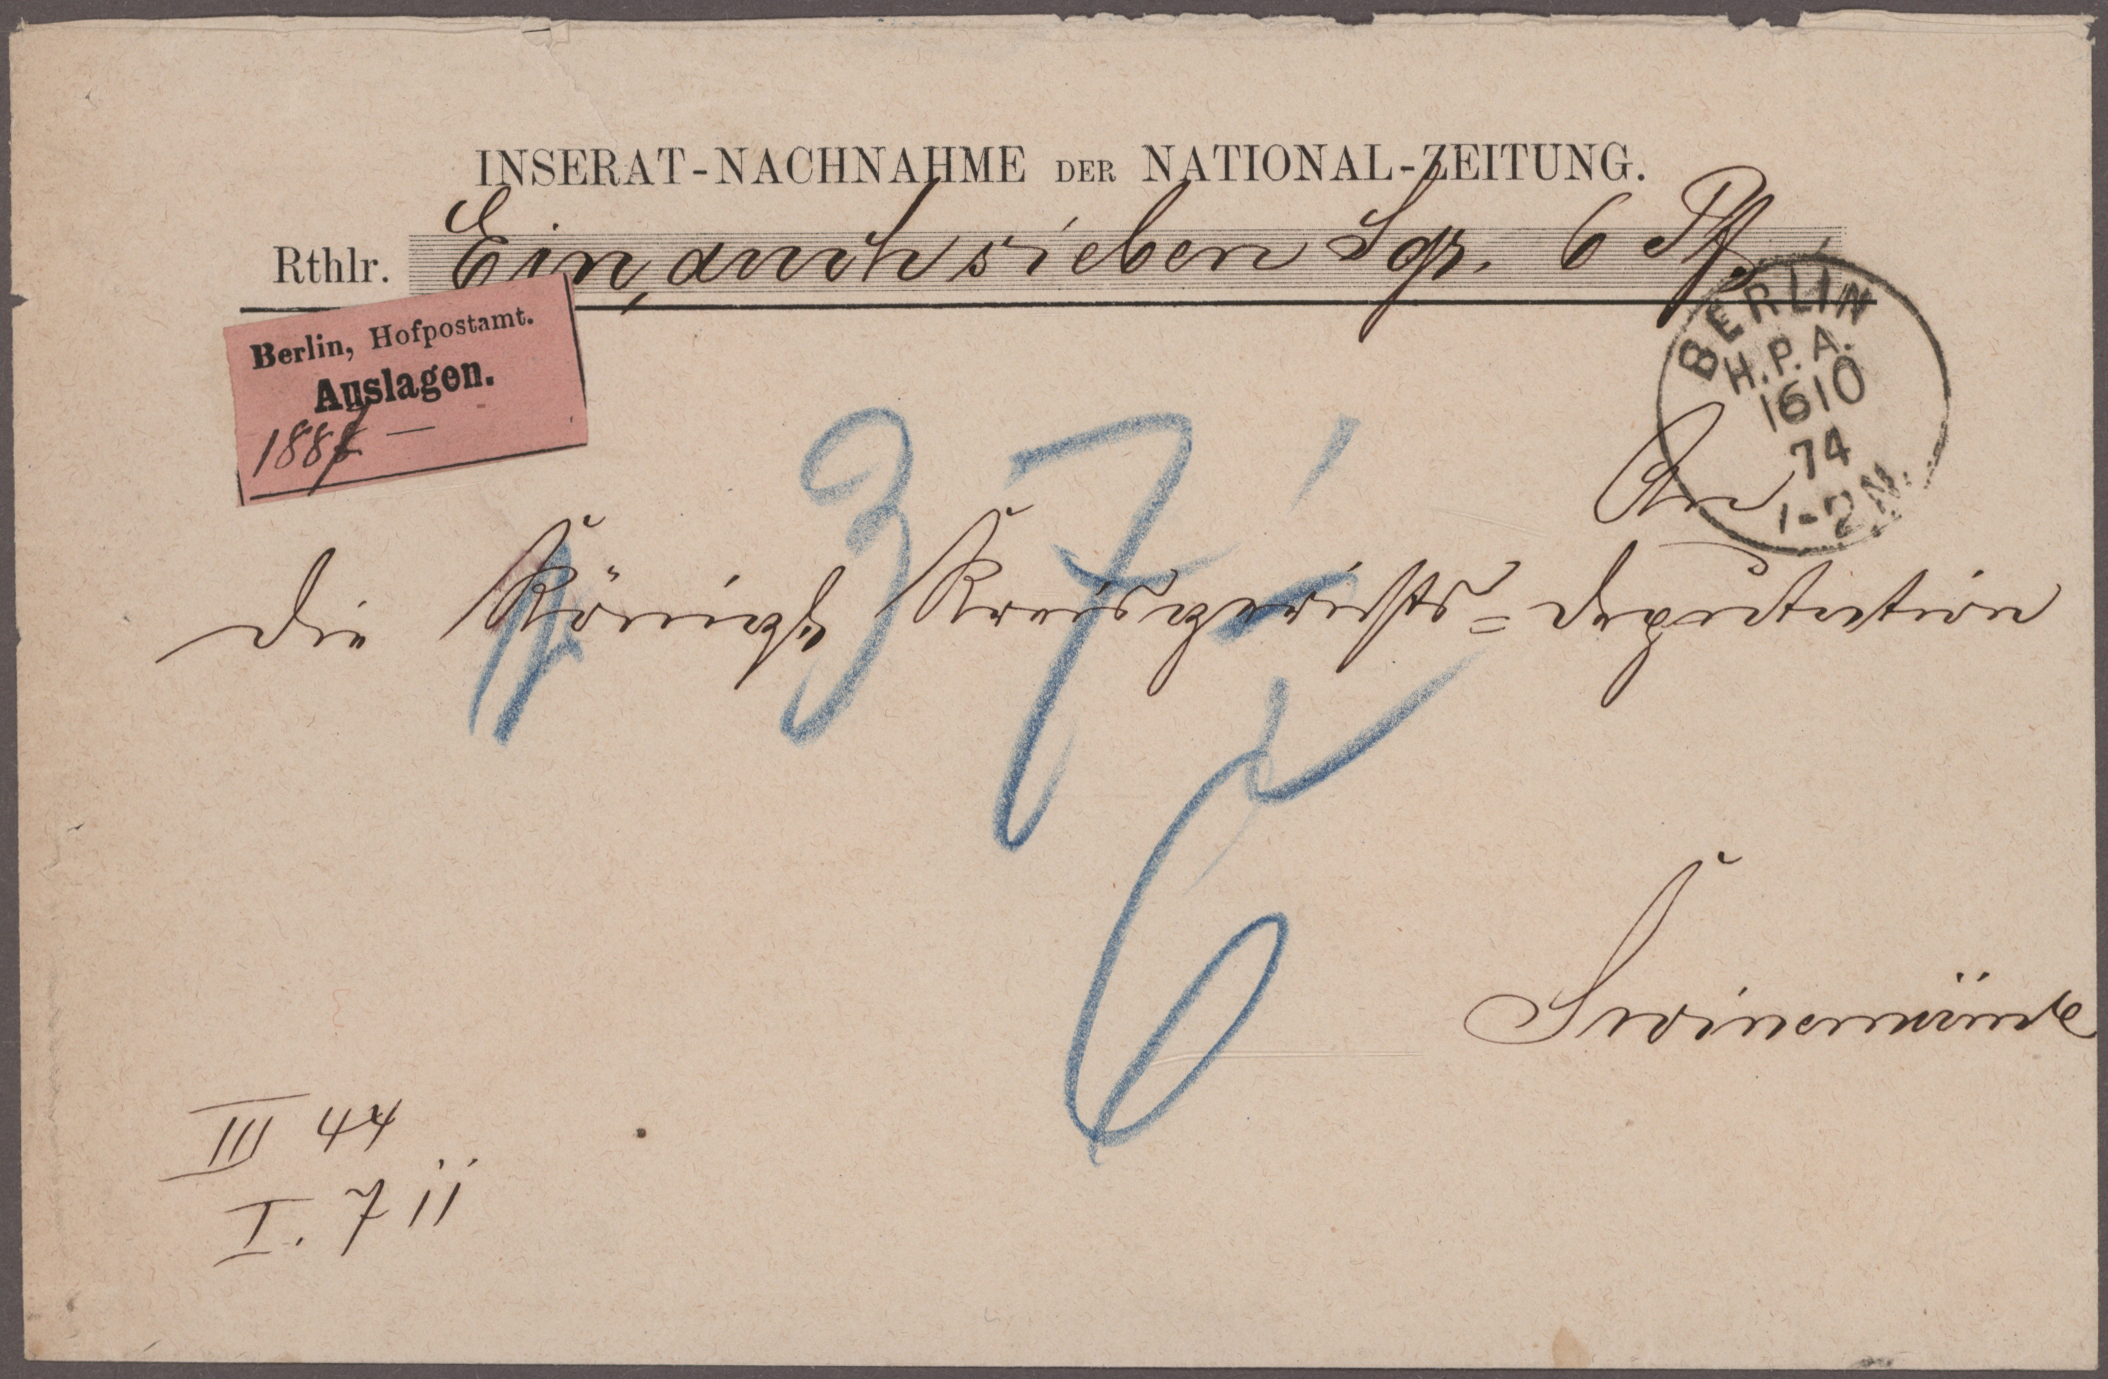 INSERAT-NACHNAHME DER NATIONAL-ZEITUNG.
Rthlr. Ein, auch sieben Sgr. 6 Pf
Berlin, Hofpostamt.
Auslagen.
188
BERLIN
H.P.A.
1610
74
1-2N.
37
An
die Königl. Kreisgerichts=Deputation
6
Swinemünde
III 44
I. 7 11